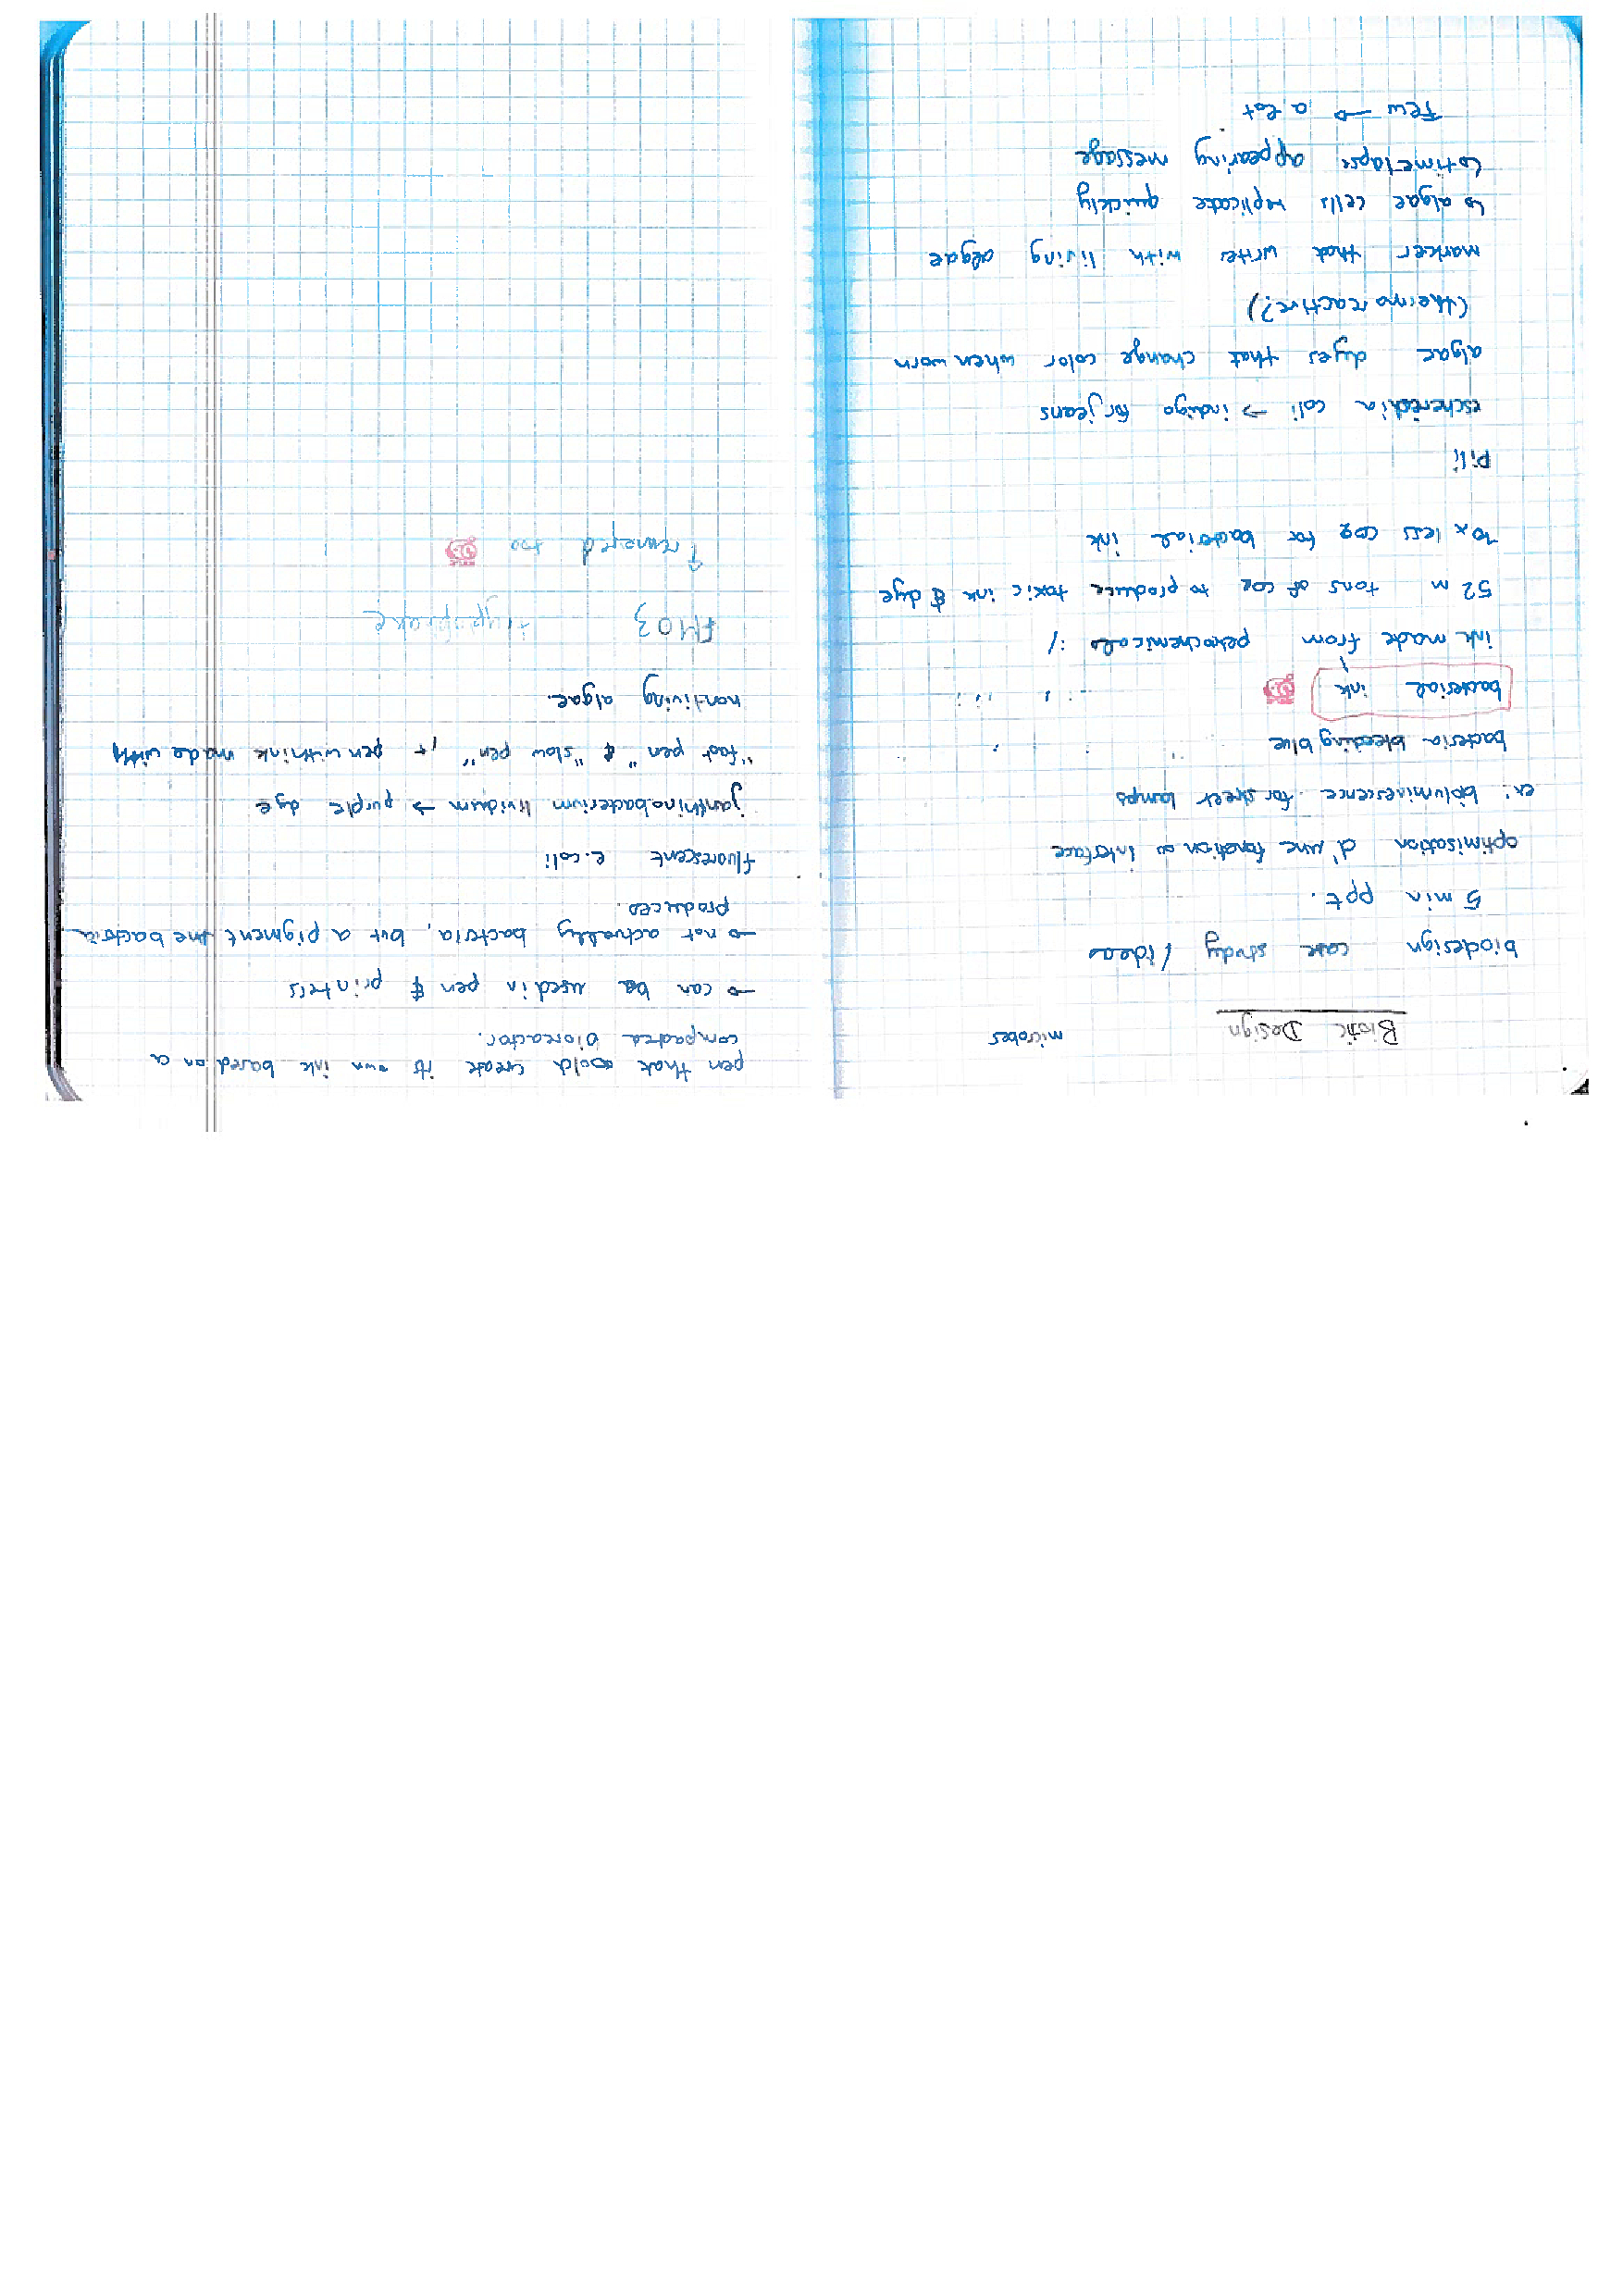 Biotic Design microbes
biodesign case study / ideas
5 min ppt.
optimisation d'une fonction ou interface
ex: bioluminescence for street lamps
bacteria bleeding blue
bacterial ink
ink made from petrochemicals :/
52 m tons of CO2 to produce toxic ink & dye
10x less CO2 for bacterial ink
Pili
escherichia coli → indigo for jeans
algae dyes that change color when worn
(thermoreactive?)
marker that writes with living algae
↳ algae cells replicate quickly
↳ timelapse appearing message
Few → a lot
pen that could create its own ink based on a
compacted bioreactor.
→ can be used in pen & printers
→ not actually bacteria, but a pigment the bacteria
produces.
fluorescent e.coli
janthinobacterium lividum → purple dye
"fast pen" & "slow pen", pen with ink made with
nonliving algae.
↑ remated too